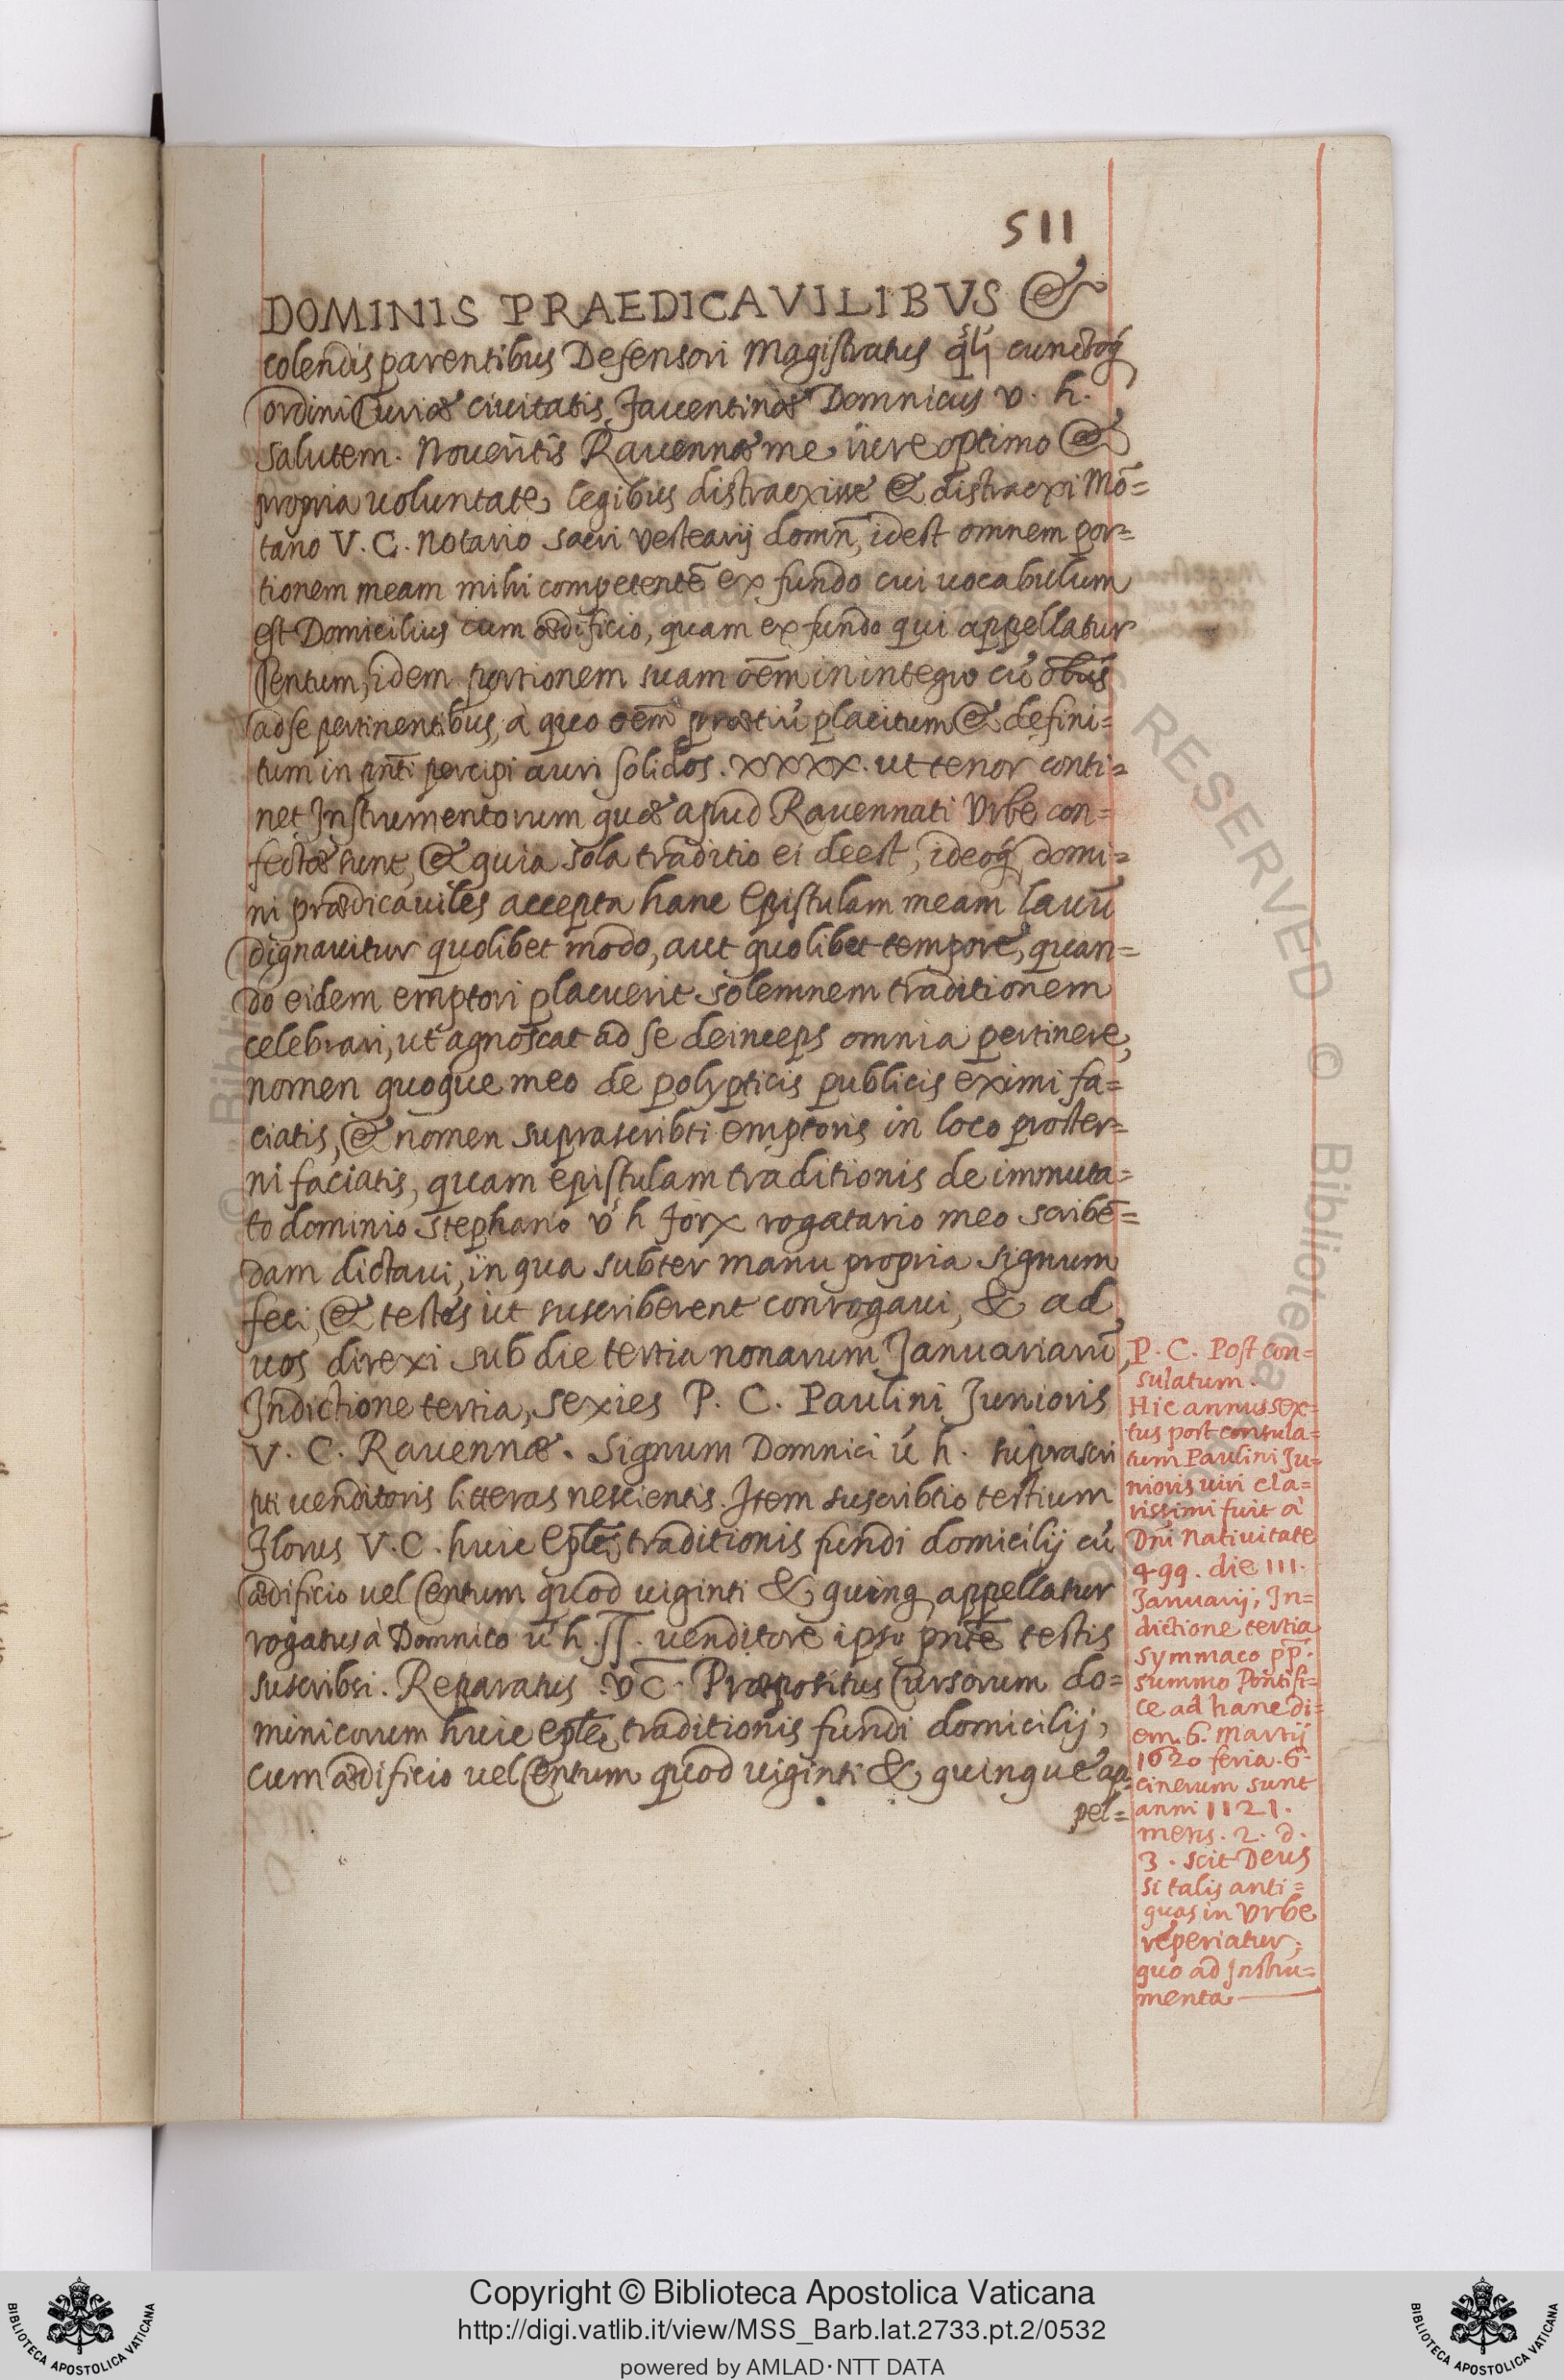 511
DOMINIS PRAEDICAVILIBVS &
colendis parentibus Defensori Magistratus q̃lj cunctoq́
ordini Curiæ ciuitatis Fauentinæ Domnicus v. h.
salutem. Noueritis Rauennæ me iure optimo &
propria uoluntate legibus distraxisse & distraxi Mō=
tano V. C. Notario sacri vestearij domñ, idest omnem por=
tionem meam mihi competentē ex fundo cui uocabulum
est Domicilius cum ædificio, quam ex fundo qui appellatur
Centum, idem portionem suam oēm in integro cū oībus
ad se pertinentibus, à quo oēm prætiū placitum & defini=
tum in pñti percipi auri solidos. XXXX. ut tenor conti=
net Instrumentorum quæ apud Rauennati Vrbe con=
fectæ sunt, & quia sola traditio ei deest, ideoq́ domi=
ni prædicauiles accepta hanc Epistulam meam lauū
dignauitur quolibet modo, aut quolibet tempore, quan=
do eidem emptori placuerit solemnem traditionem
celebrari, ut agnoscat ad se deinceps omnia pertinere,
nomen quoque meo de polypticis publicis eximi fa=
ciatis, & nomen suprascribti emptoris in loco proster=
ni faciatis, quam epistulam traditionis de immuta=
to dominio Stephano v h forx rogatario meo scribē=
dam dictaui, in qua subter manu propria signum
feci, & testes ut suscriberent conrogaui, & ad
uos direxi sub die tertia nonarum Januariarū,
Indictione tertia, sexies P. C. Paulini Junioris
V. C. Rauennæ. Signum Domnici ú h. suprascri
pti uenditoris litteras nescientis. Item suscribtio testium
Florus V. C. huic Eptlę traditionis fundi domicilij cū
ædificio uel Centum quod uiginti & quinq appellatur
rogatus à Domnico ú h. ss. uenditore ipso pñte testis
suscribsi. Reparatus .v c̄. Præpositus Cursorum do=
minicorum huic eptlę traditionis fundi domicilij,
cum ædificio uel Centum quod uiginti & quinque ap=
pel=
P. C. Post con=
sulatum.
Hic annus sex=
tus post consula=
tum Paulini Ju=
nioris uiri cla=
rissimi fuit à
Dñi Natiuitate
499. die III.
Januarij, In=
dictione tertia
Symmaco pp̄.
summo Pontifi=
ce ad hanc di=
em. 6. Martij
1620 feria. 6.
cinerum sunt
anni 1121.
mens. 2. d.
3. scit Deus
si talis anti=
quas in Vrbe
reperiatur,
quo ad Instru=
menta
Copyright © Biblioteca Apostolica Vaticana
http://digi.vatlib.it/view/MSS_Barb.lat.2733.pt.2/0532
powered by AMLAD·NTT DATA
BIBLIOTECA APOSTOLICA VATICANA
BIBLIOTECA APOSTOLICA VATICANA